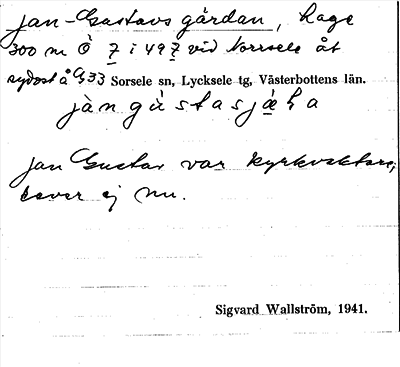 Jan-Gustavs gärdan, hage
300 m Ö 7 i 497 vid Norrsele åt
sydost å G33 Sorsele sn, Lycksele tg, Västerbottens län.
Jan Gustav var kyrkvaktare,
lever ej nu.
Sigvard Wallström, 1941.